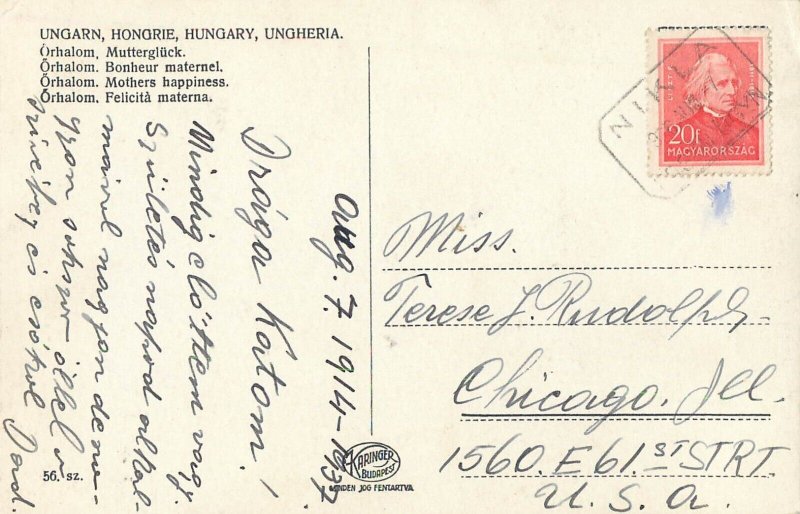 UNGARN, HONGRIE, HUNGARY, UNGHERIA.
Őrhalom, Mutterglück.
Őrhalom. Bonheur maternel.
Őrhalom. Mothers happiness.
Őrhalom. Felicità materna.
Aug. 7. 1914-1937
Drága Katom!
Mindig előttem vagy.
Születés napod alkal-
mával nagyon
sokszor öllel
és csókol Dad.
56. sz.
KARINGER
BUDAPEST
MINDEN JOG FENTARTVA
NIKLA
LISZT F.
20f
MAGYARORSZÁG
Miss.
Terese J. Rudolph
Chicago. Ill.
1560. E 61. ST STRT.
U. S. A.